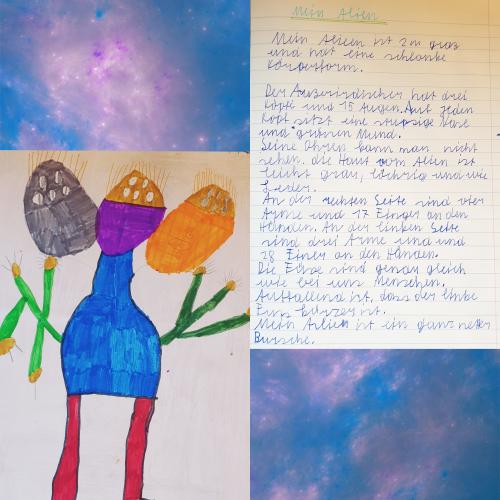 Mein Alien
Mein Alieen ist 2m groß
und hat eine schlanke
Körperform.
Der Auserirdischer hat drei
Köpfe und 15 Augen. Auf jeden
Kopf sitzt eine stupsige Nase
und grünen Mund.
Seine Ohren kann man nicht
sehen. die Haut vom Alien ist
leicht grau, löchrig und wie
Leder.
An der rechten Seite sind vier
Arme und 17 Finger an den
Händen. An der linken Seite
sind drei Arme und und
28 Finer an den Händen.
Die Füße sind genau gleich
wie bei uns Menschen.
Auffallend ist, dass der linke
Fuß kürzer ist.
Mein Alien ist ein ganz netter
Bursche.